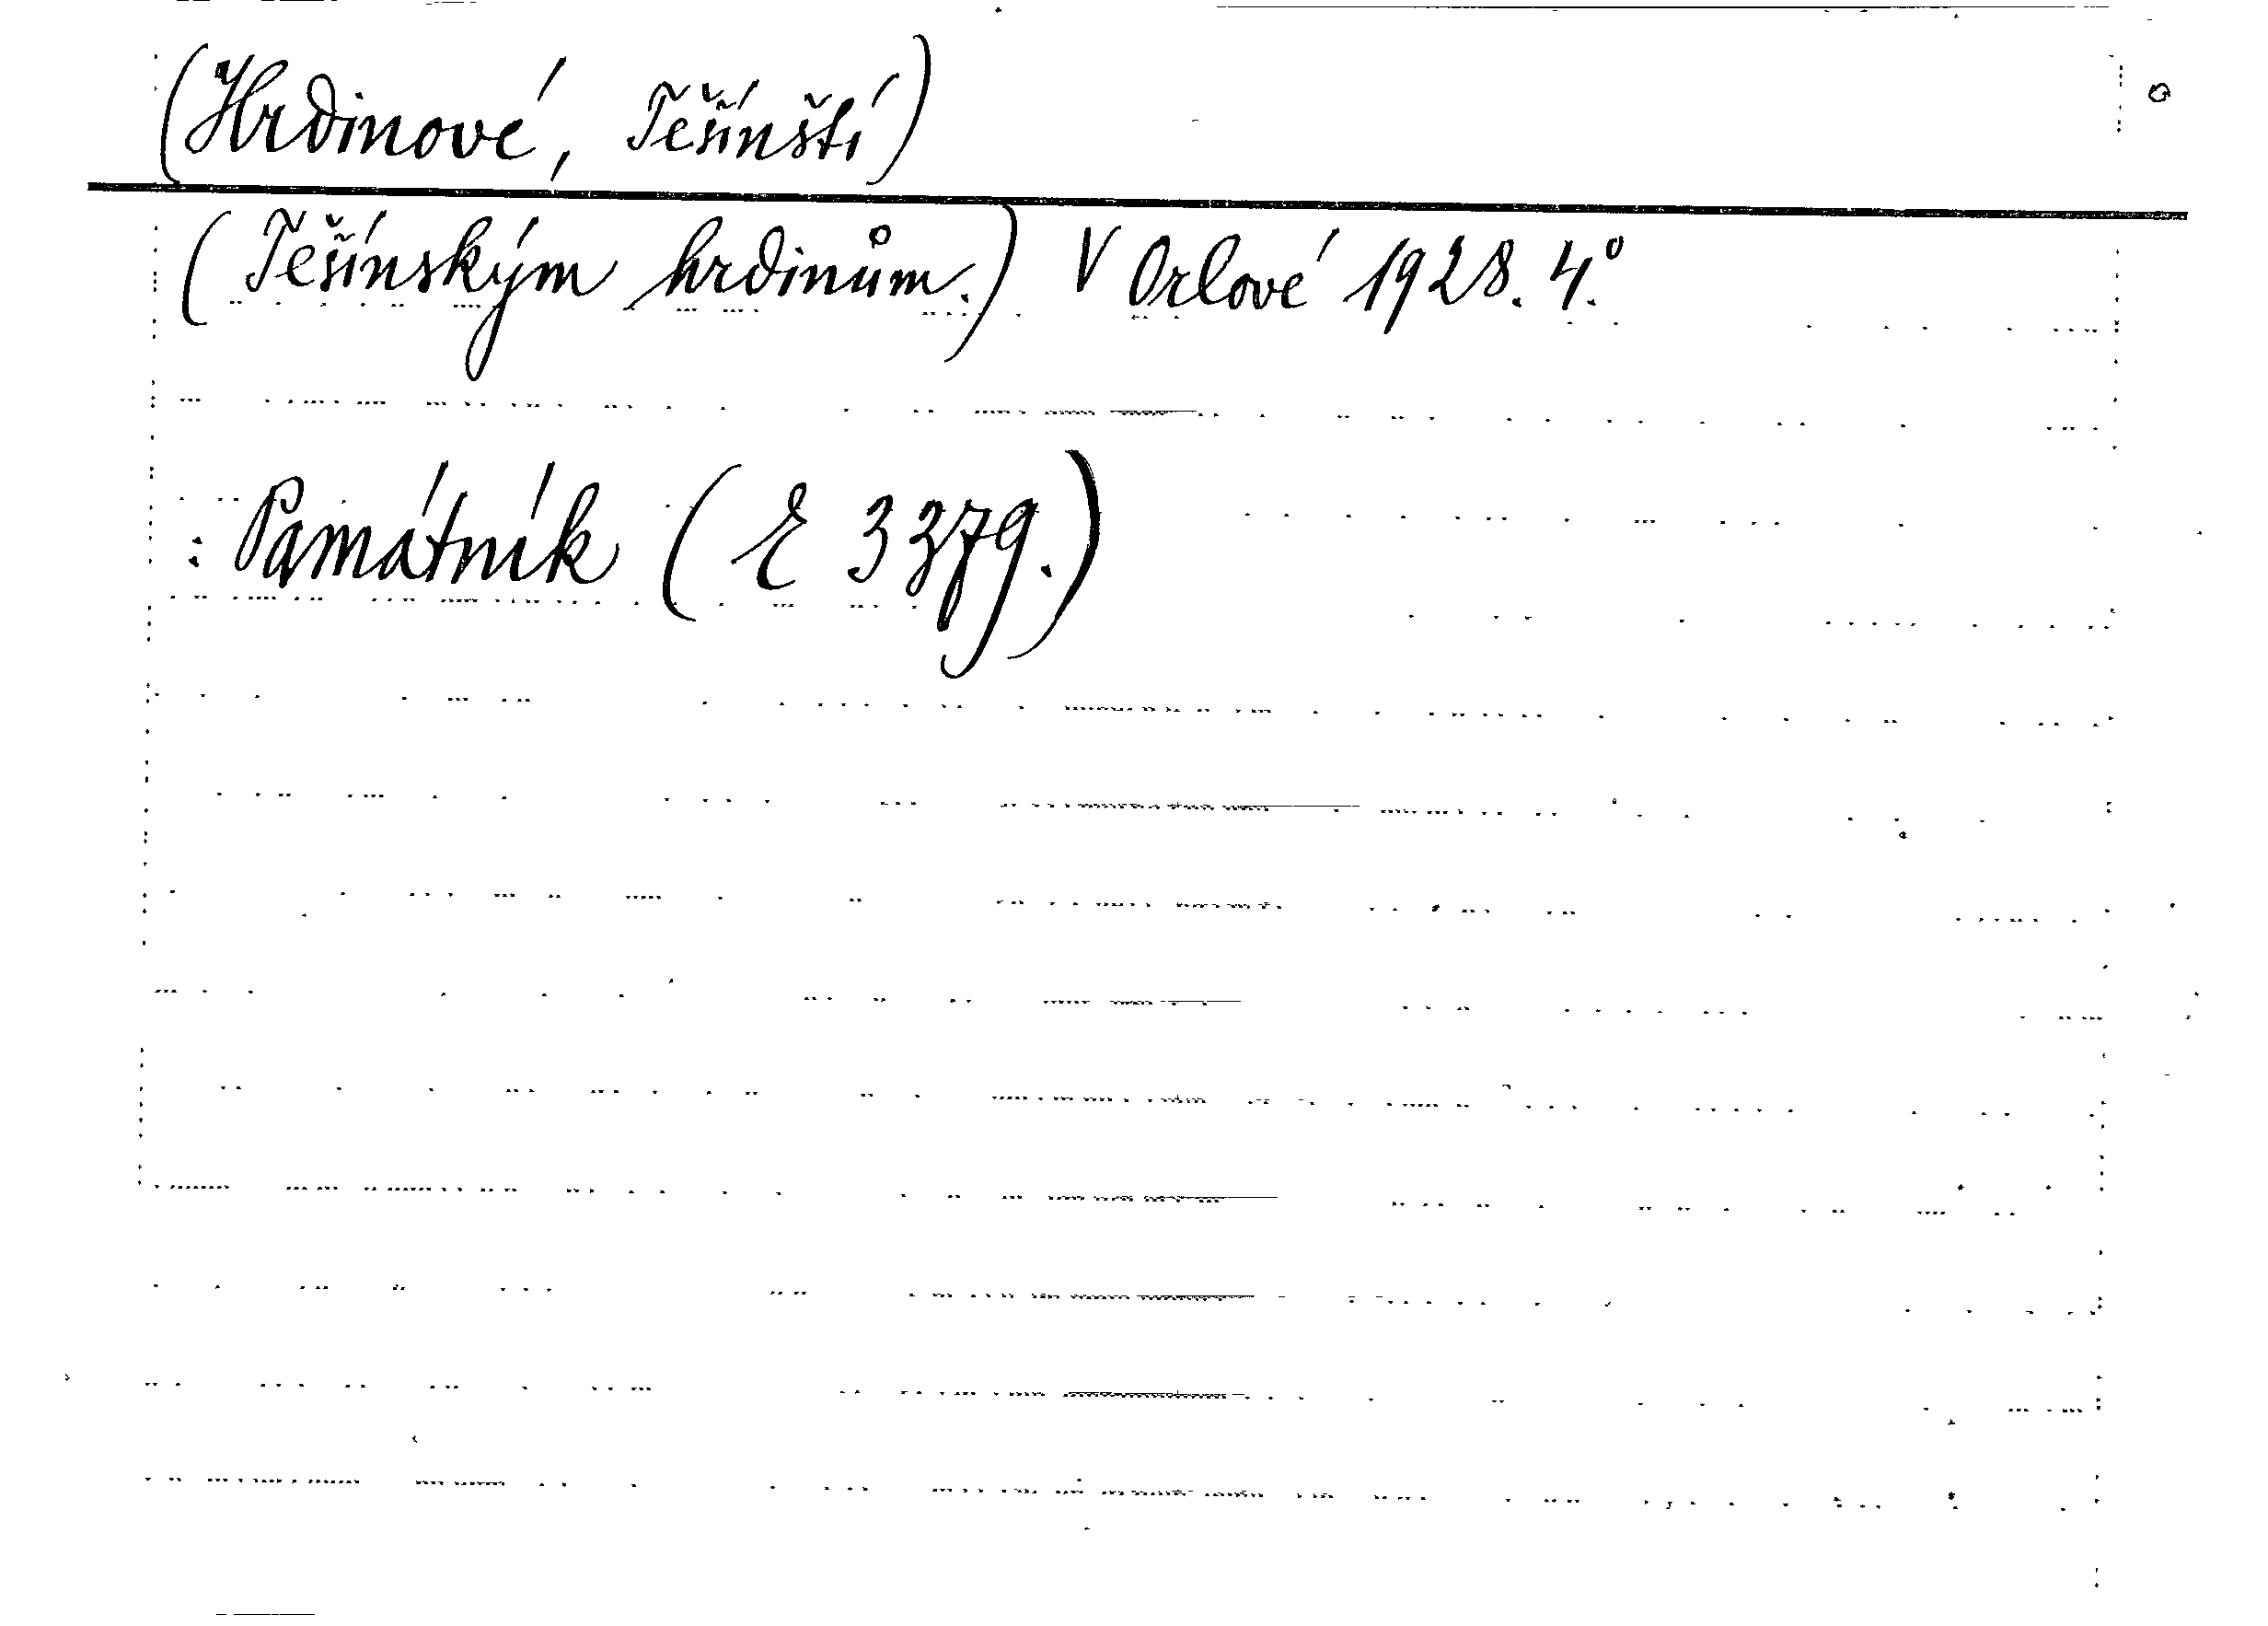 (Hrdinové, Těšínští)
(Těšínským hrdinům.) V Orlové 1928. 4.°
: Památník (E 3379.)